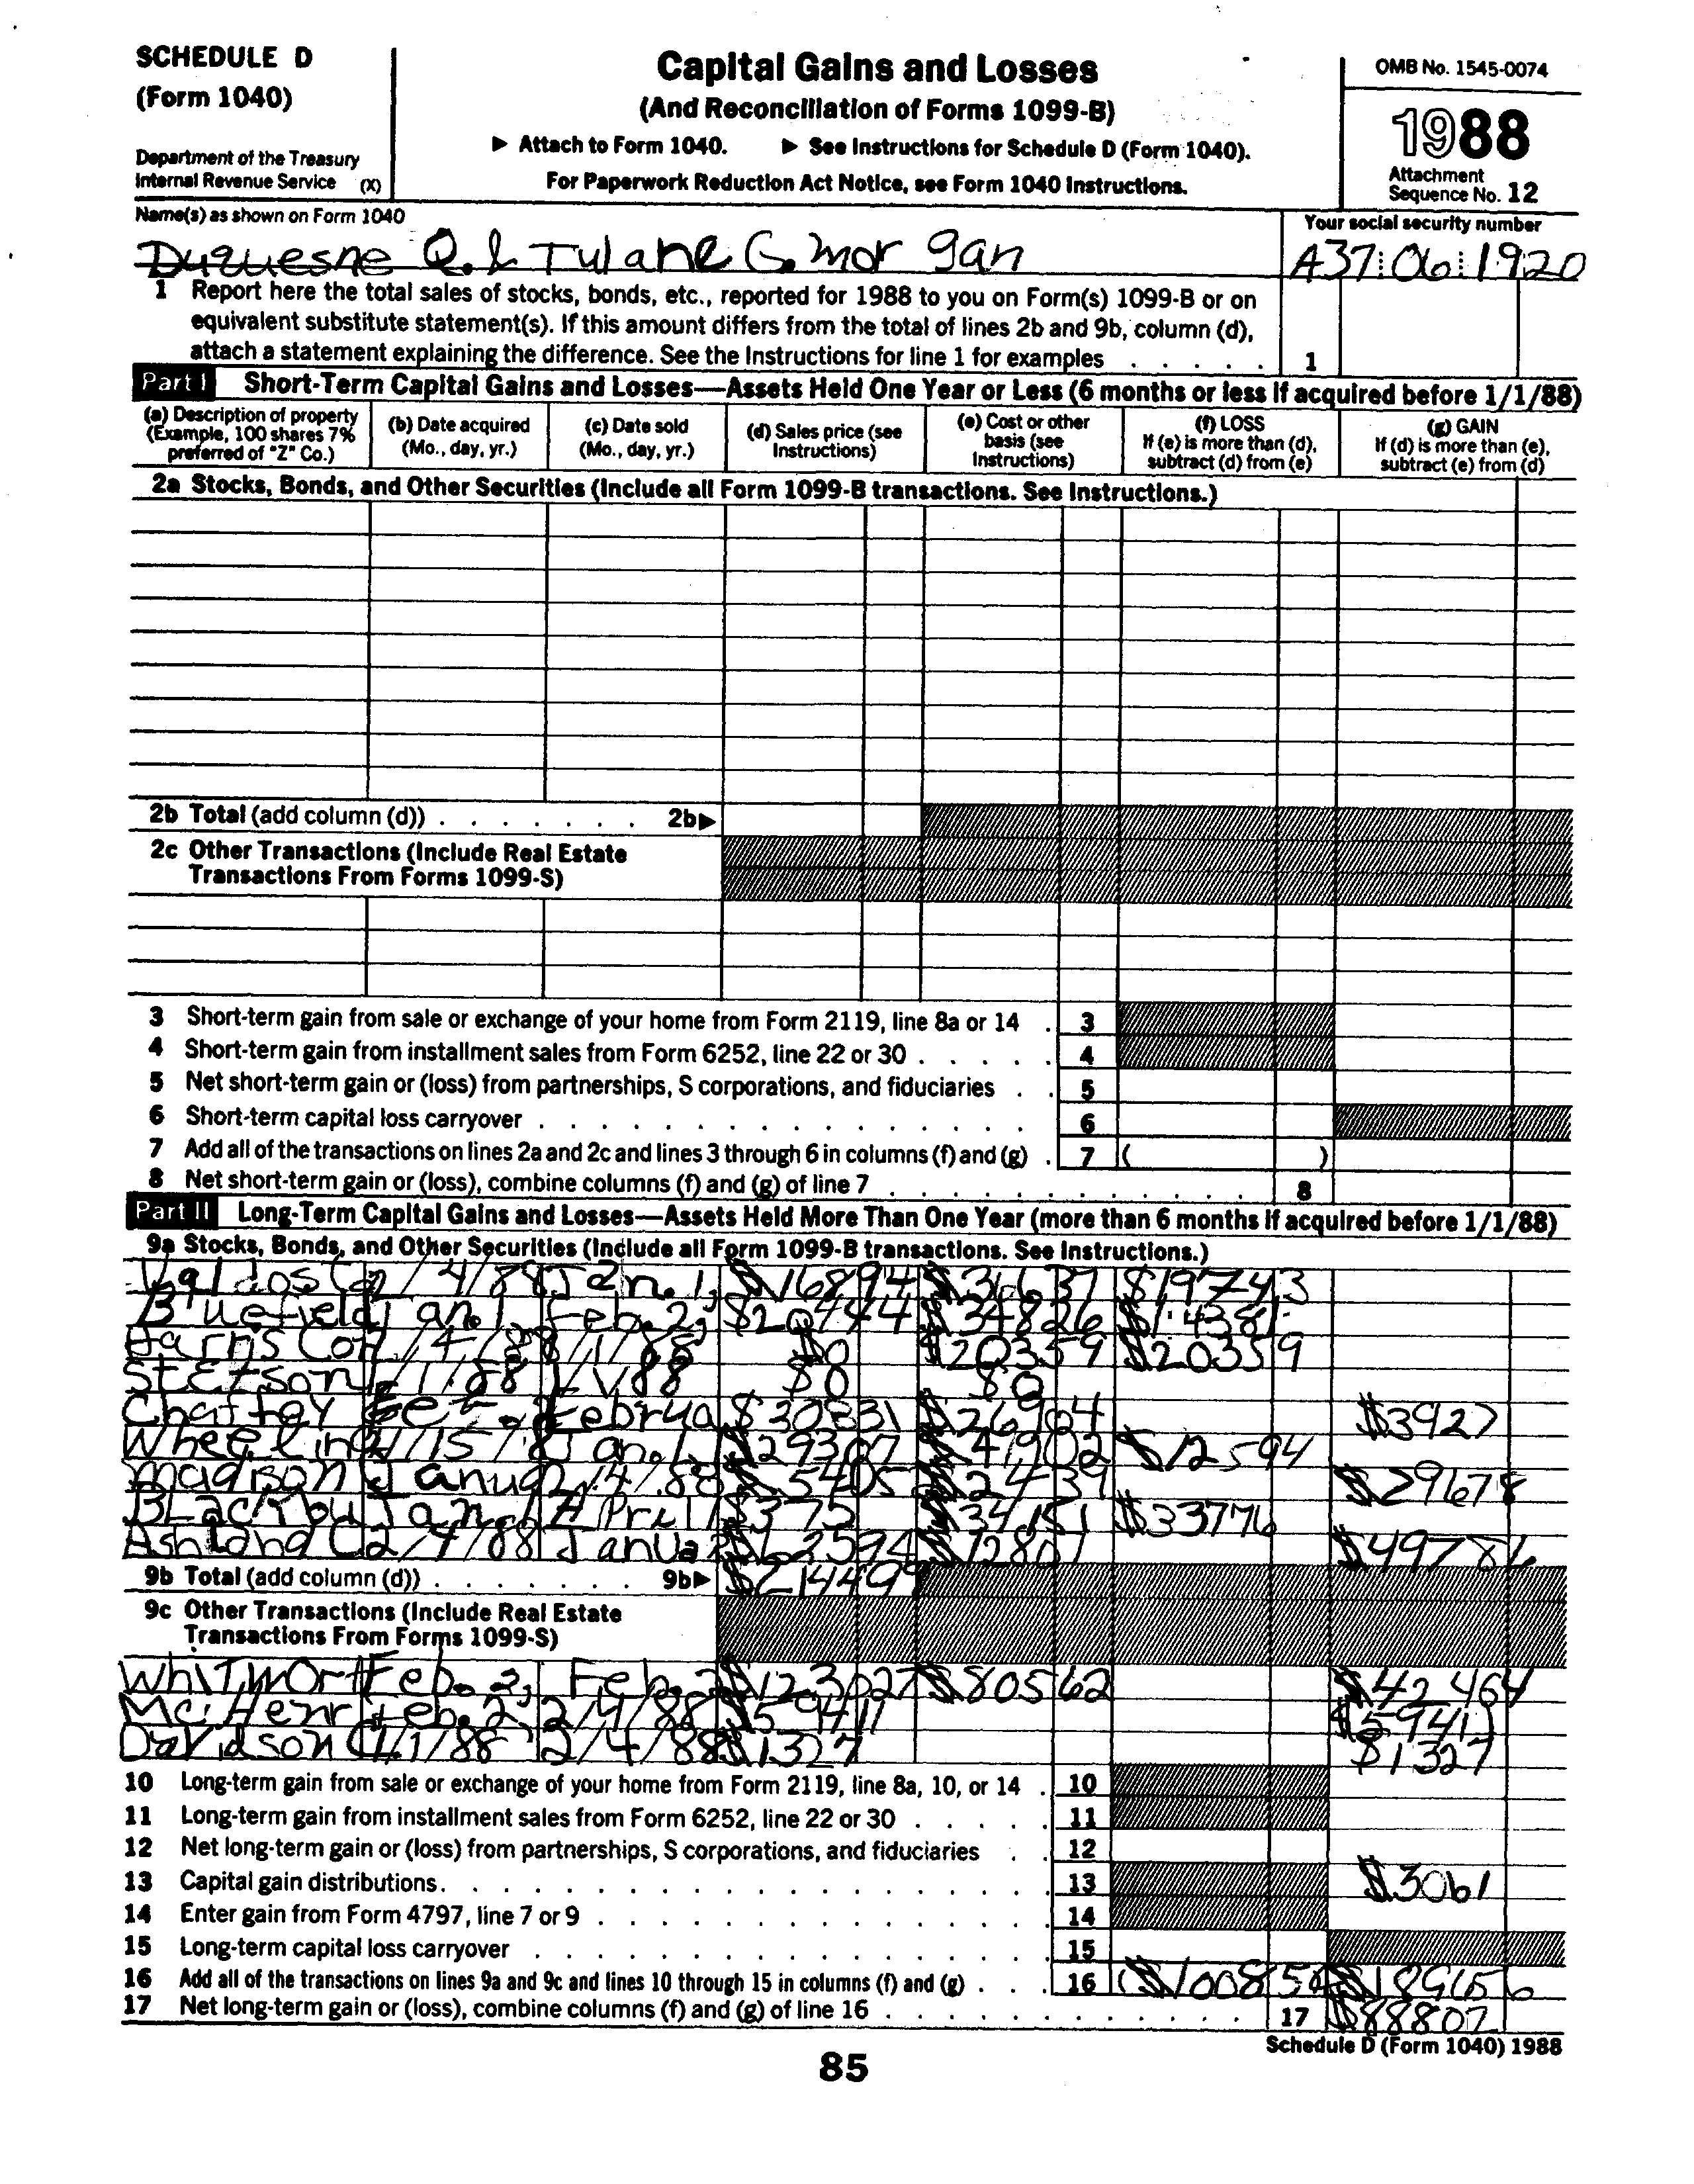 SCHEDULE D
(Form 1040)
Department of the Treasury
Internal Revenue Service (X)
Capital Gains and Losses
(And Reconciliation of Forms 1099-B)
▶ Attach to Form 1040. ▶ See Instructions for Schedule D (Form 1040).
For Paperwork Reduction Act Notice, see Form 1040 Instructions.
OMB No. 1545-0074
1988
Attachment
Sequence No. 12
Name(s) as shown on Form 1040
Your social security number
Duquesne Q. & Tulane G. mor gan A37:06:1920
1 Report here the total sales of stocks, bonds, etc., reported for 1988 to you on Form(s) 1099-B or on
equivalent substitute statement(s). If this amount differs from the total of lines 2b and 9b, column (d),
attach a statement explaining the difference. See the Instructions for line 1 for examples . . . . . 1
Part I Short-Term Capital Gains and Losses—Assets Held One Year or Less (6 months or less if acquired before 1/1/88)
(a) Description of property
(Example, 100 shares 7%
preferred of "Z" Co.)
(b) Date acquired
(Mo., day, yr.)
(c) Date sold
(Mo., day, yr.)
(d) Sales price (see
Instructions)
(e) Cost or other
basis (see
Instructions)
(f) LOSS
If (e) is more than (d),
subtract (d) from (e)
(g) GAIN
If (d) is more than (e),
subtract (e) from (d)
2a Stocks, Bonds, and Other Securities (Include all Form 1099-B transactions. See Instructions.)
2b Total (add column (d)) . . . . . . . 2b▶
2c Other Transactions (Include Real Estate
Transactions From Forms 1099-S)
3 Short-term gain from sale or exchange of your home from Form 2119, line 8a or 14 . 3
4 Short-term gain from installment sales from Form 6252, line 22 or 30 . . . . . 4
5 Net short-term gain or (loss) from partnerships, S corporations, and fiduciaries . . 5
6 Short-term capital loss carryover . . . . . . . . . . . . . . . 6
7 Add all of the transactions on lines 2a and 2c and lines 3 through 6 in columns (f) and (g) . 7 ( )
8 Net short-term gain or (loss), combine columns (f) and (g) of line 7 . . . . . . . . . . . . 8
Part II Long-Term Capital Gains and Losses—Assets Held More Than One Year (more than 6 months if acquired before 1/1/88)
9a Stocks, Bonds, and Other Securities (Include all Form 1099-B transactions. See Instructions.)
Valdosta 2/4/88 Jan. 1, $16894 $36637 $19743
Bluefield Jan. 1 Feb. 2, $20444 $34826 $14381
Harris Co $0 $20359 $20359
Stetson 1/1/88 1/1/88 $0 $0
Chaffey Februa $30831 $26904 $3927
Wheeling Jan. 1, $29307 $41902 $12594
Madison Janua 2/4/88 $2439 $29678
Blackbu Jan. 1 April $375 $34151 $33776
Ashland C 2/4/88 Janua $62594 $12807 $49786
9b Total (add column (d)) . . . . . . . 9b▶ $214499
9c Other Transactions (Include Real Estate
Transactions From Forms 1099-S)
Whitwort Feb. 2, Feb. 2 $123027 $80562 $42464
McHenr Feb. 2, 2/4/88 $59411 $59411
Davidson C 1/1/88 2/4/88 $1327 $1327
10 Long-term gain from sale or exchange of your home from Form 2119, line 8a, 10, or 14 . 10
11 Long-term gain from installment sales from Form 6252, line 22 or 30 . . . . . 11
12 Net long-term gain or (loss) from partnerships, S corporations, and fiduciaries . . 12
13 Capital gain distributions . . . . . . . . . . . . . . . . . 13 $3061
14 Enter gain from Form 4797, line 7 or 9 . . . . . . . . . . . . . 14
15 Long-term capital loss carryover . . . . . . . . . . . . . . . 15
16 Add all of the transactions on lines 9a and 9c and lines 10 through 15 in columns (f) and (g) . . . 16 ($100854 $189656
17 Net long-term gain or (loss), combine columns (f) and (g) of line 16 . . . . . . . . . . . . 17 $88802
Schedule D (Form 1040) 1988
85